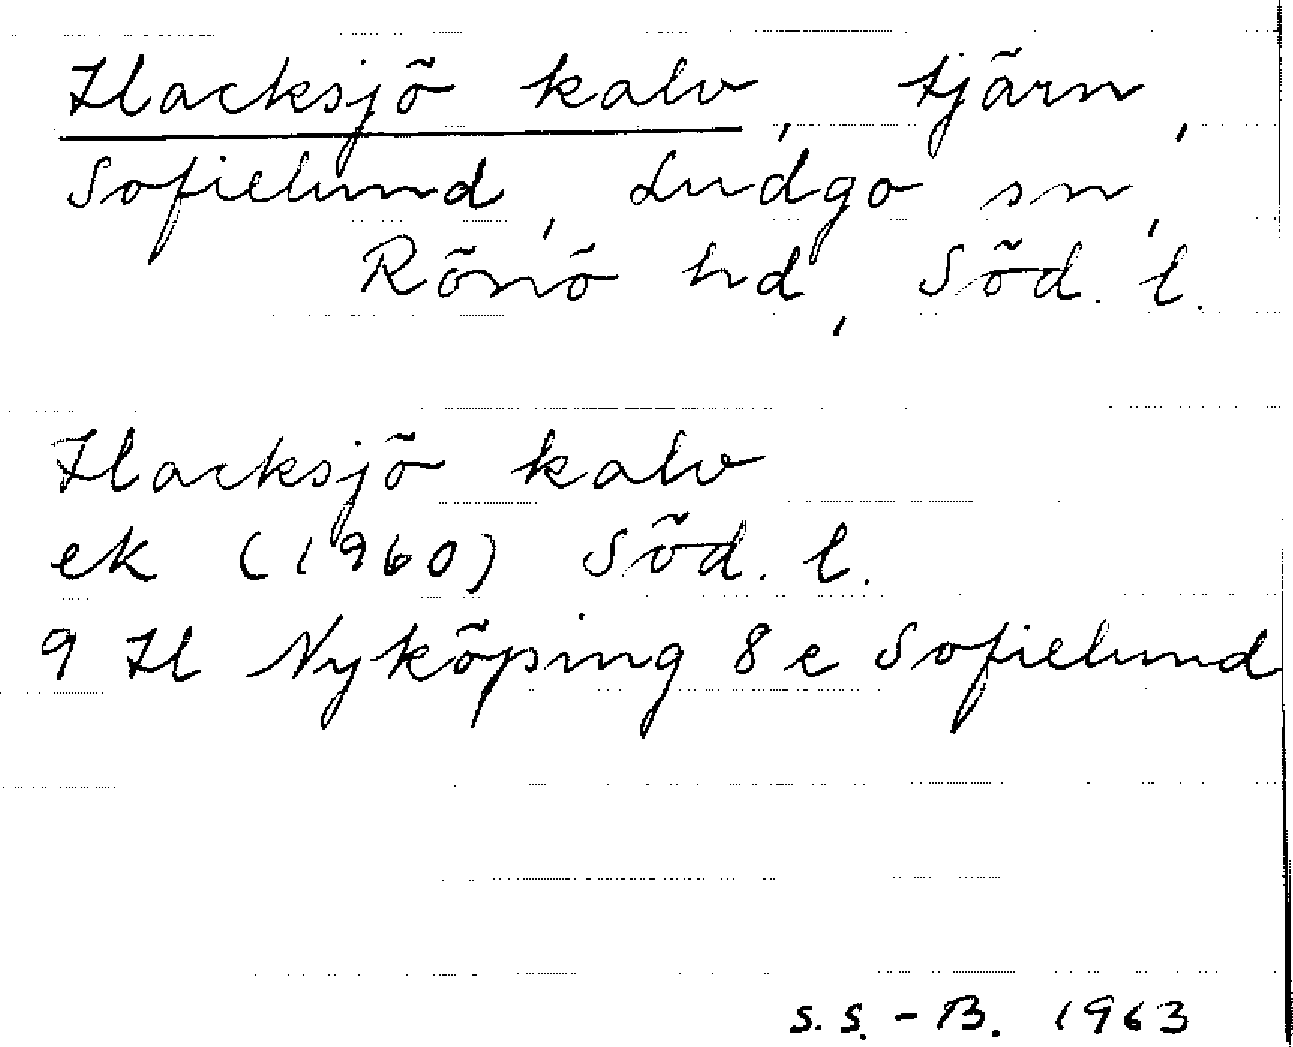 Hacksjö kalv, tjärn,
Sofielund, Ludgo sn,
Rönö hd, Söd. l.
Hacksjö kalv
ek (1960) Söd. l.
9 H Nyköping 8 e Sofielund
S.S.-B. 1963